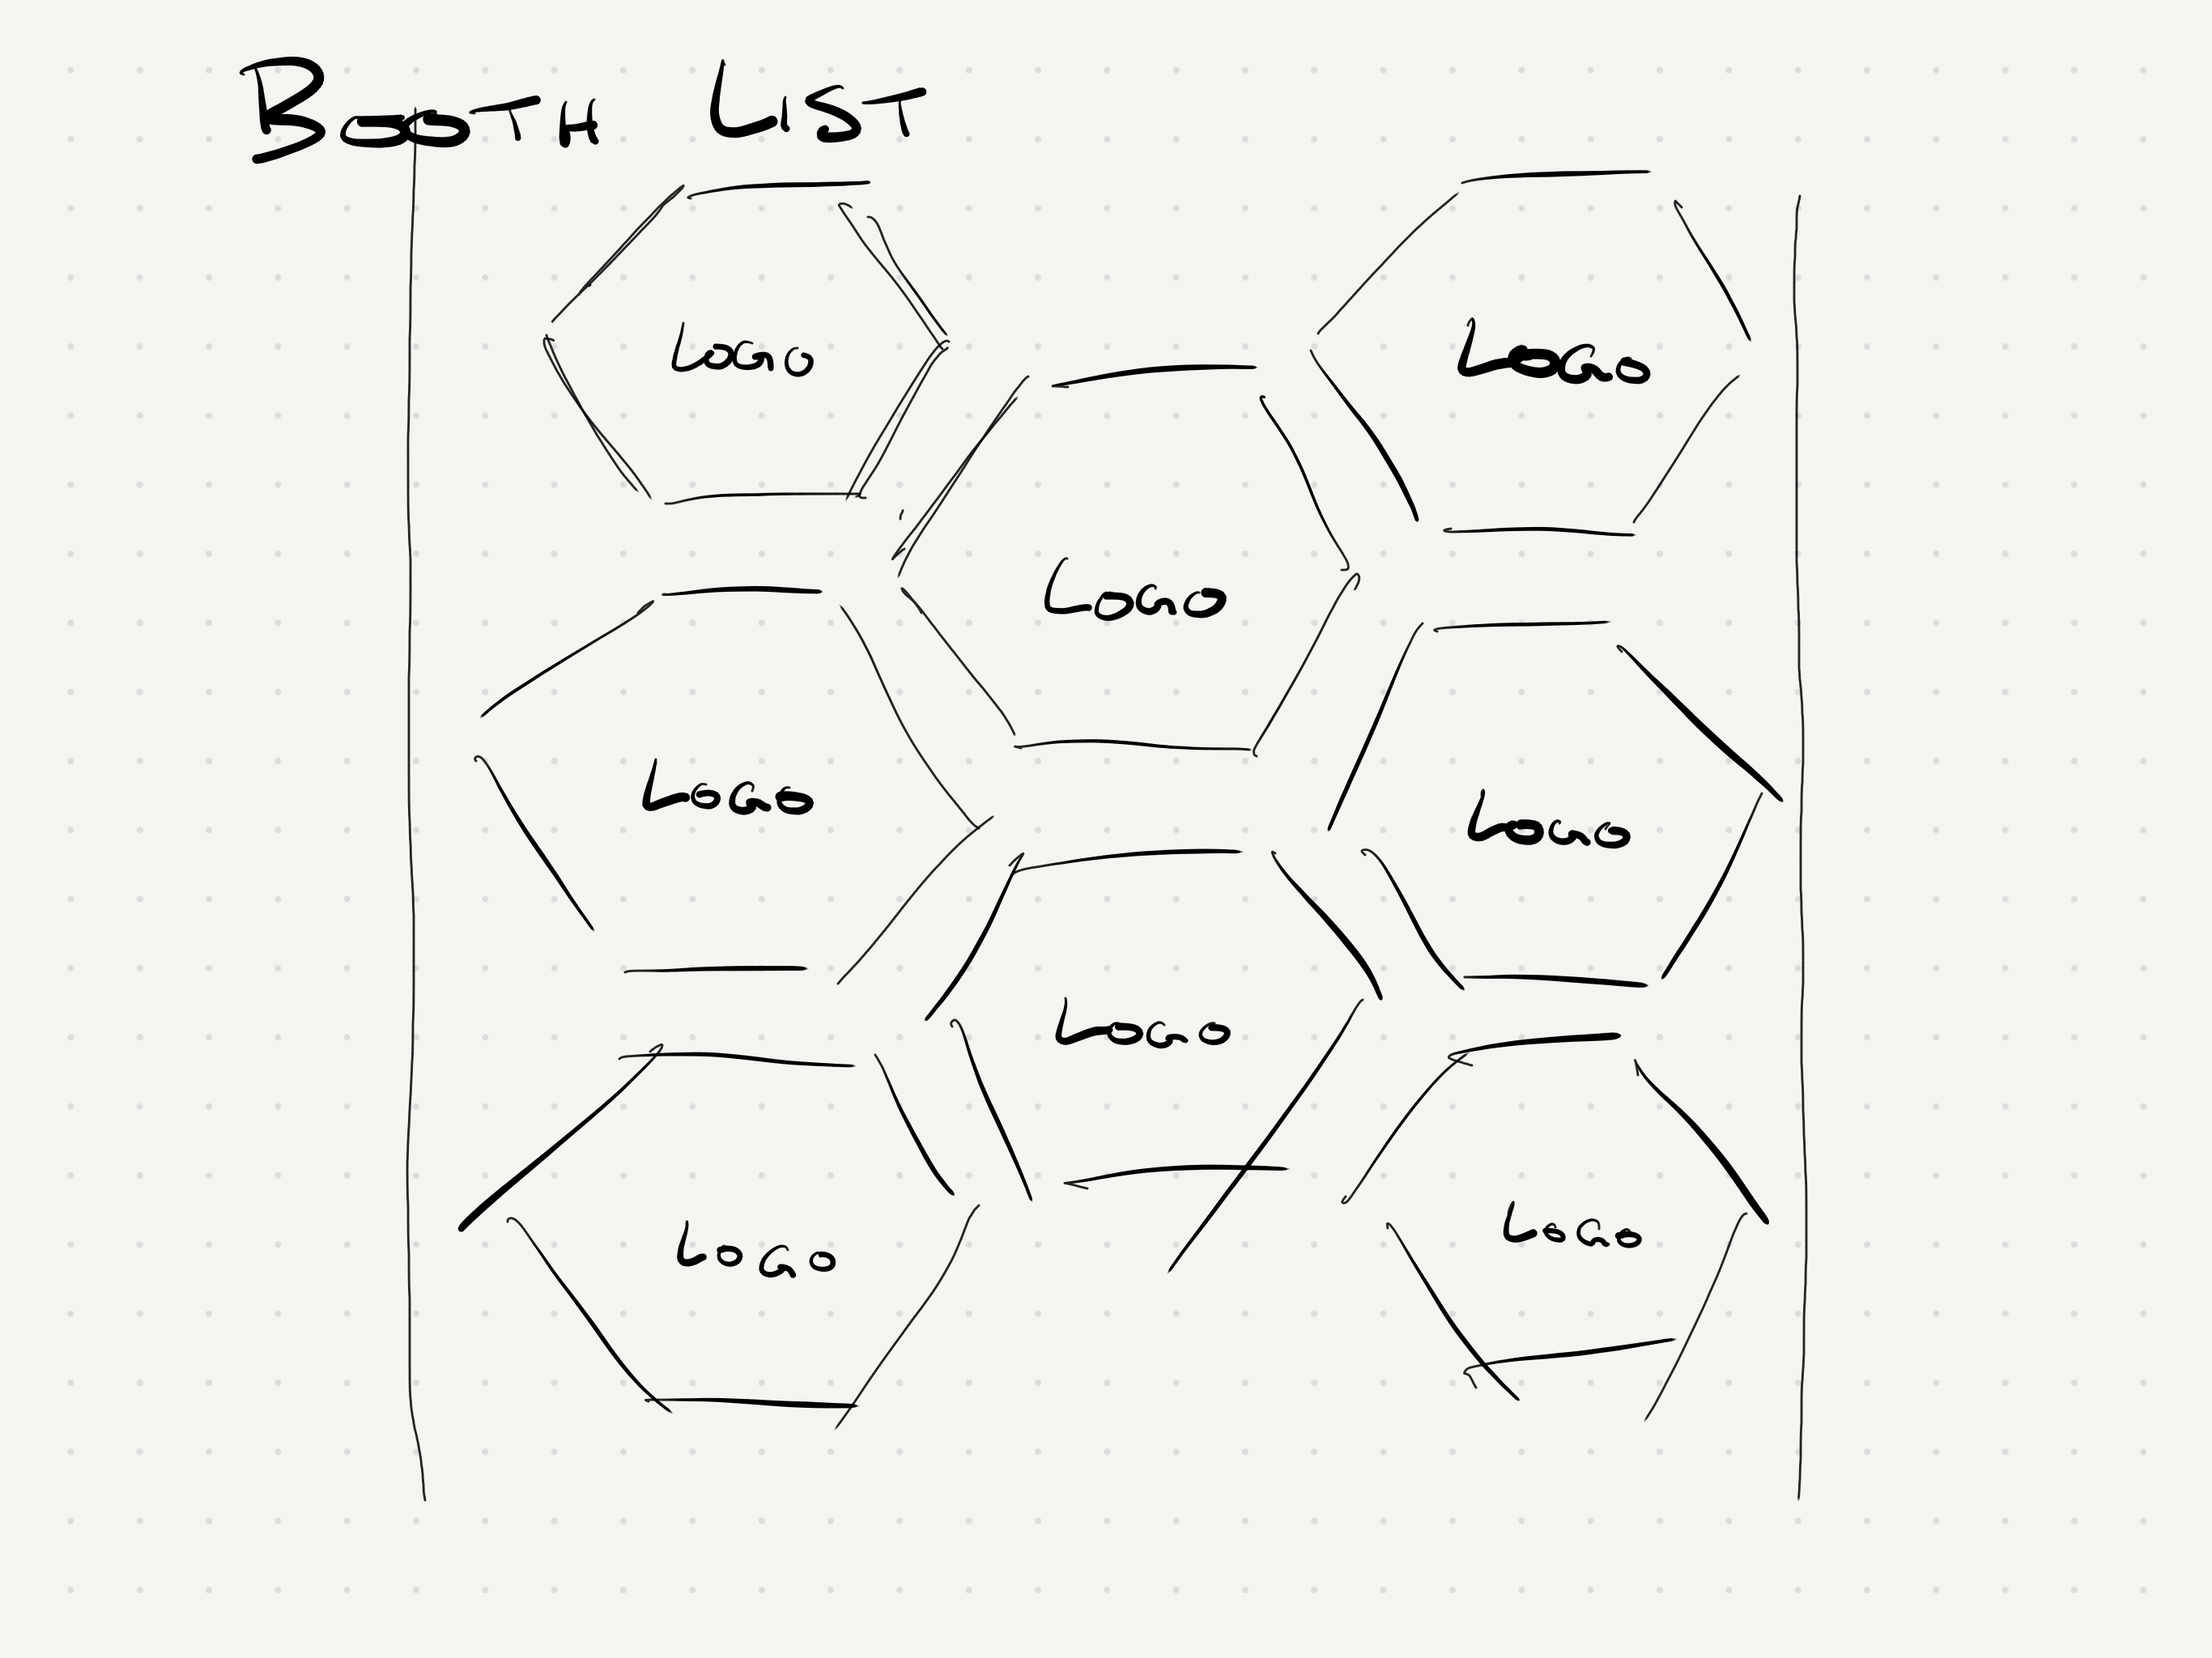 BOOTH LIST
LOGO
LOGO
LOGO
LOGO
LOGO
LOGO
LOGO
LOGO